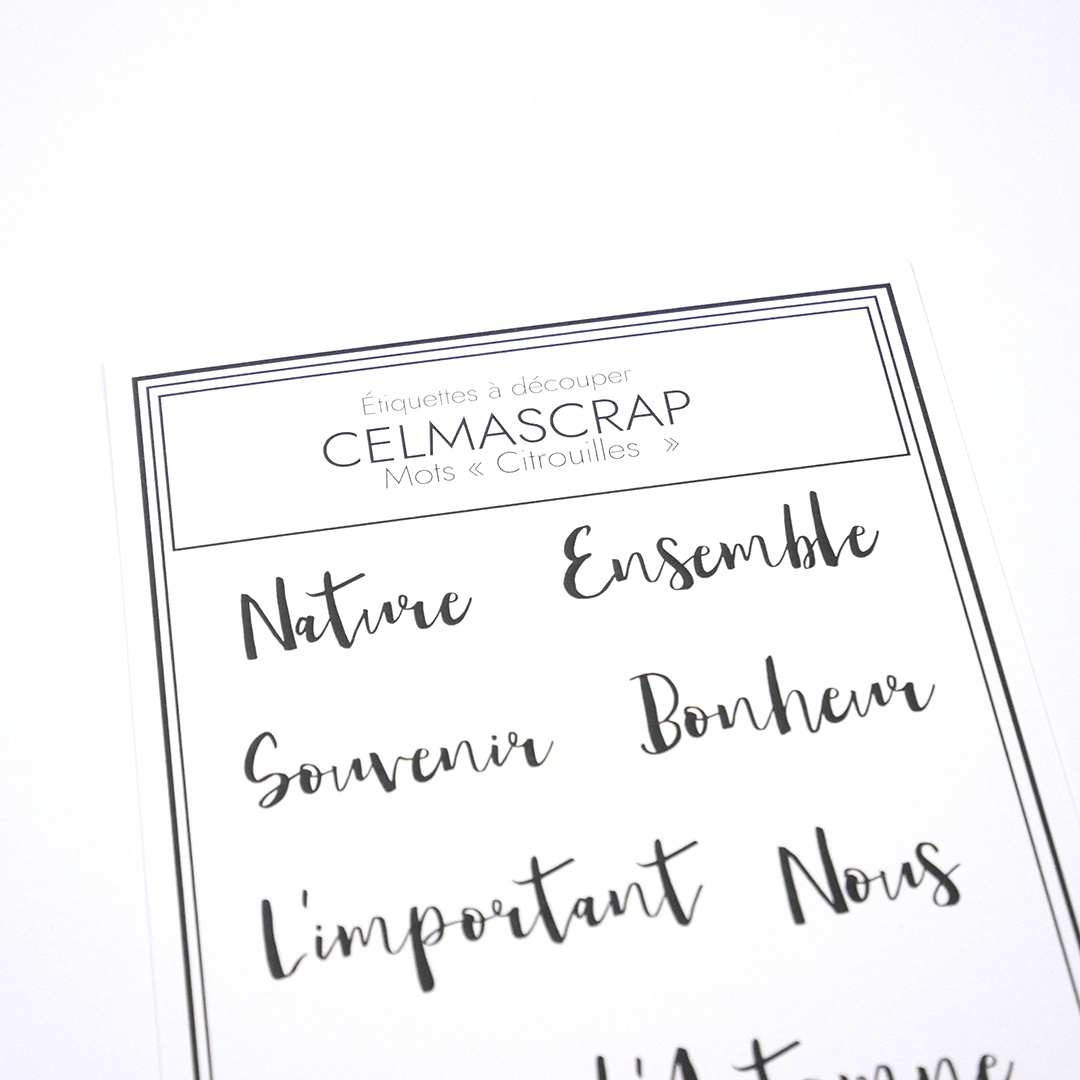 Étiquettes à découper
CELMASCRAP
Mots « Citrouilles »
Nature Ensemble
Souvenir Bonheur
L'important Nous